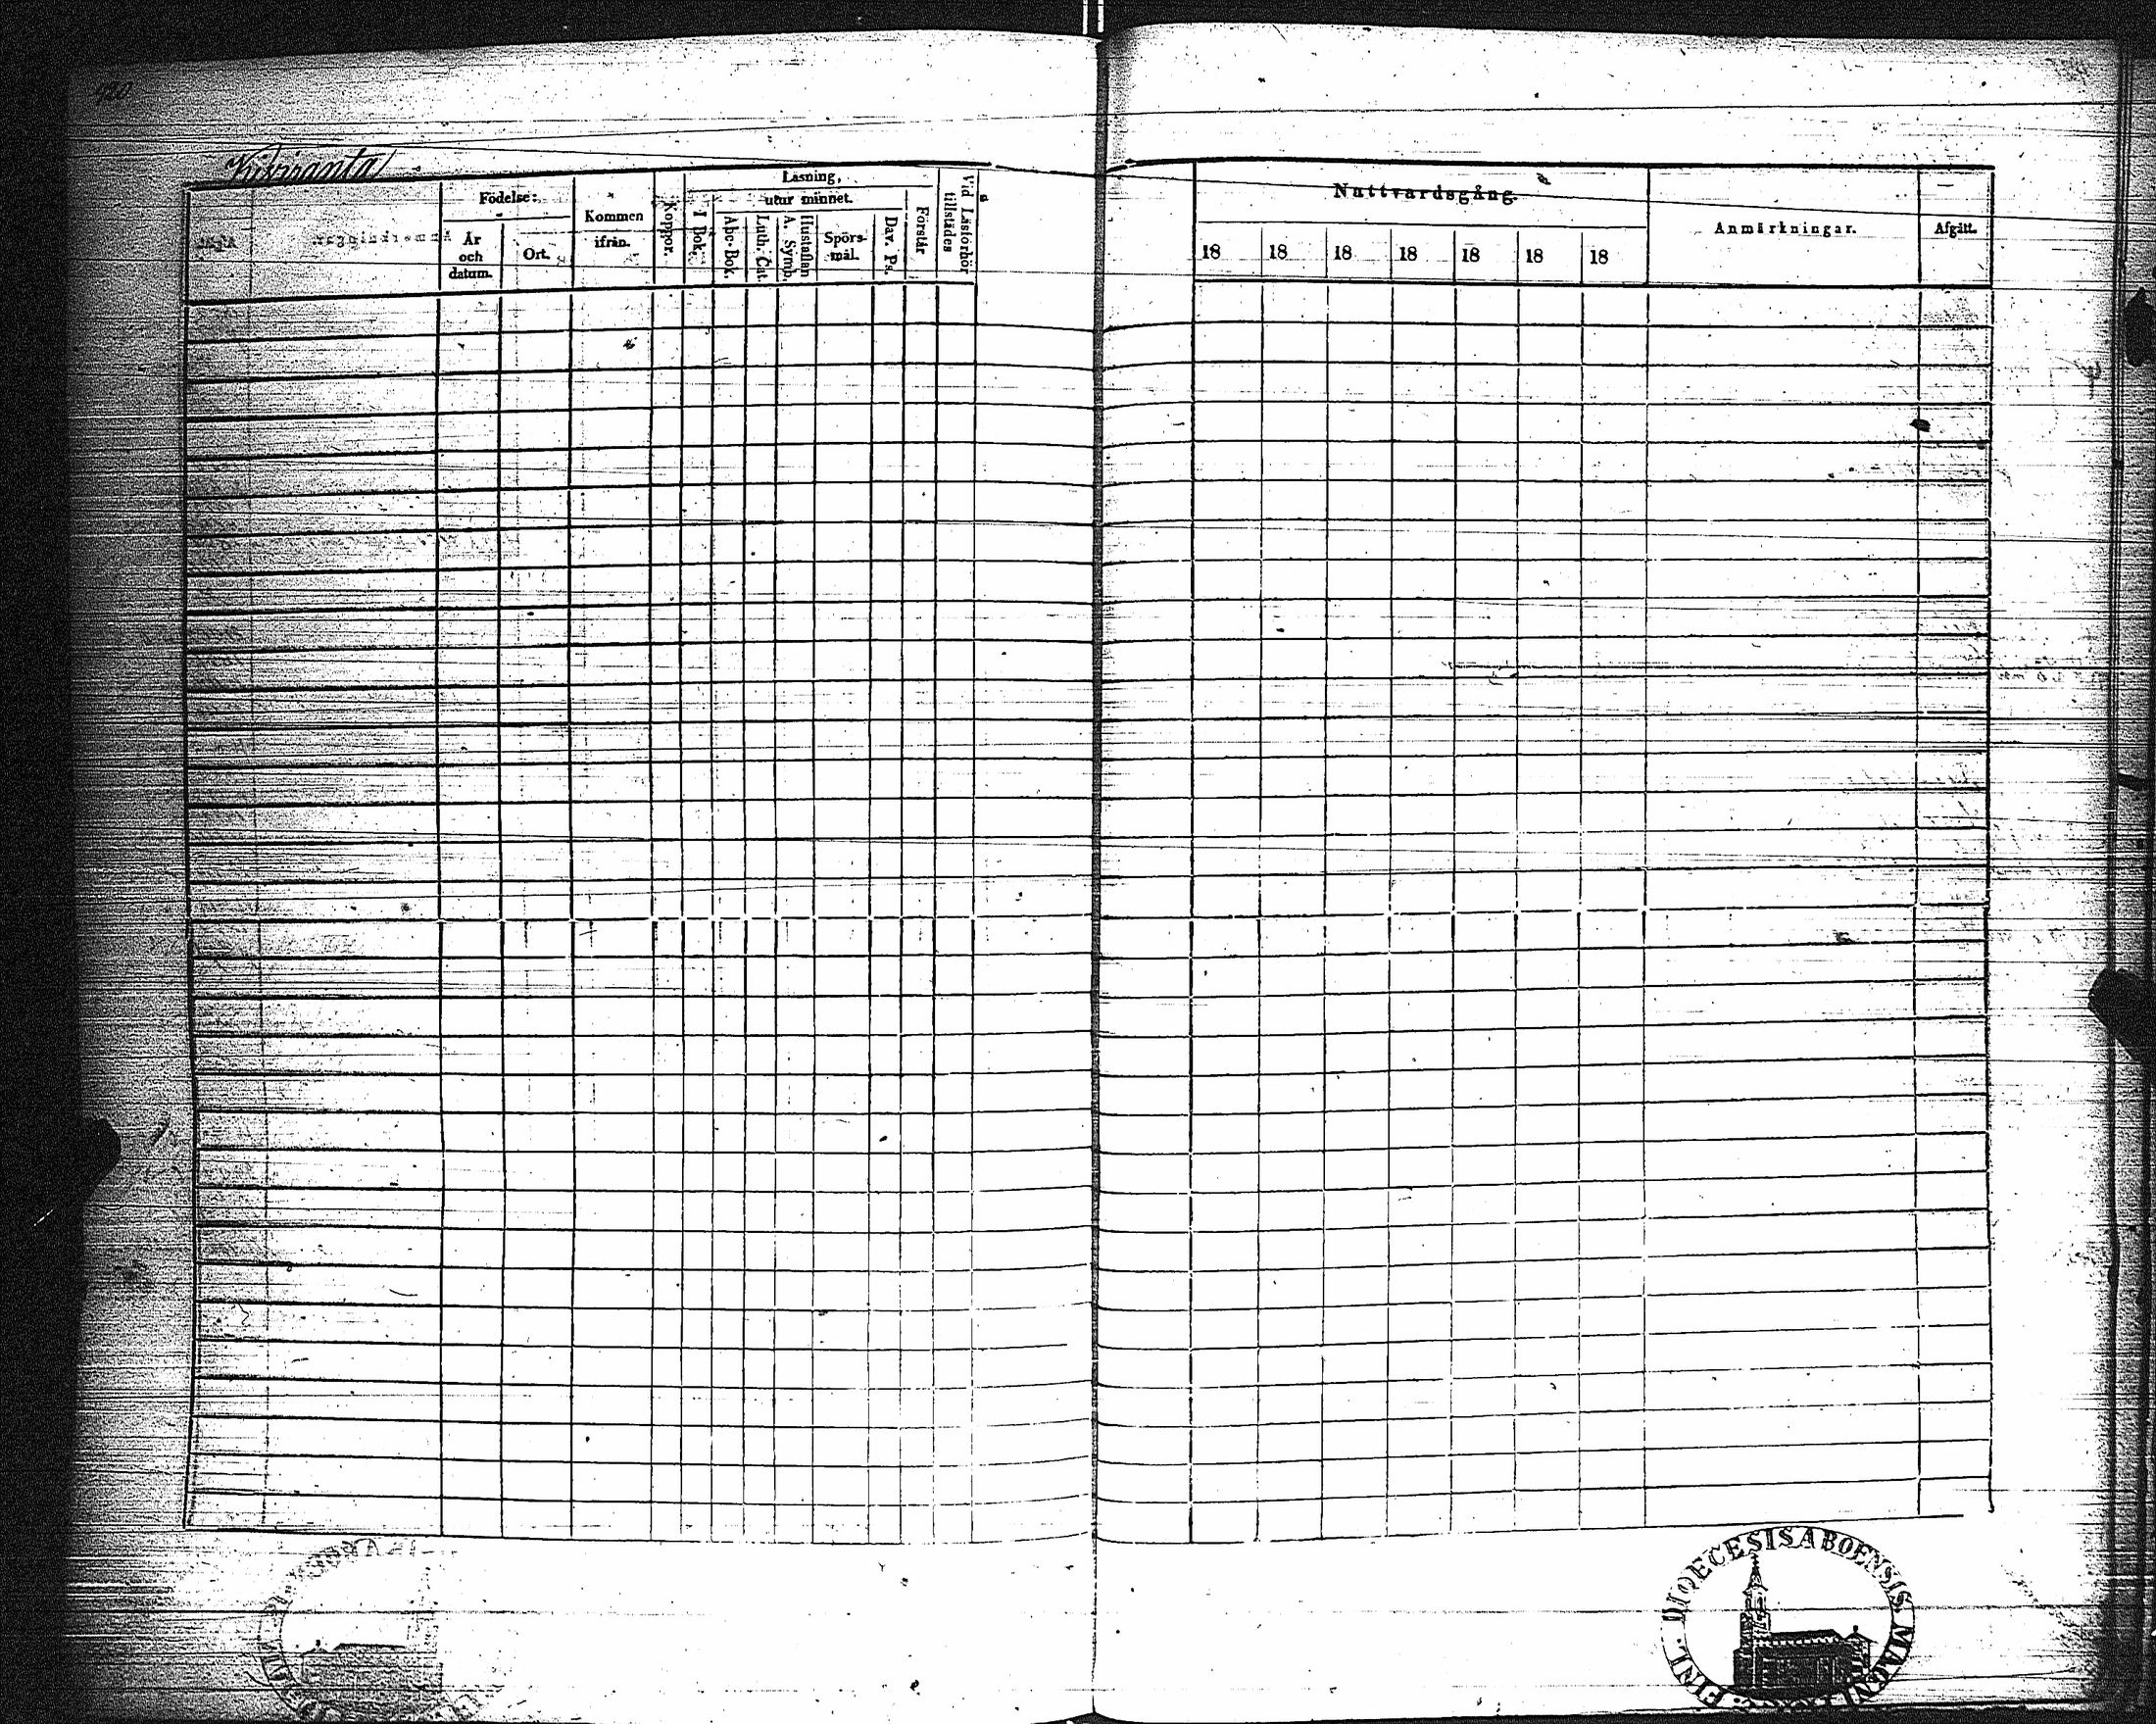 420
Kiviranta
Födelse:
År och datum.
Ort.
Kommen ifrån.
Koppor.
Läsning,
I Bok.
utur minnet.
Abc-Bok
Luth. Cat.
Hustaflan A. Symb.
Spörs-mål.
Dav. Ps.
Förstår
Vid Läsförhör tillstädes
Nattvardsgång.
18 18 18 18 18 18 18
Anmärkningar.
Afgått.
FINL. DIOECESIS ABOENSIS MAGNI